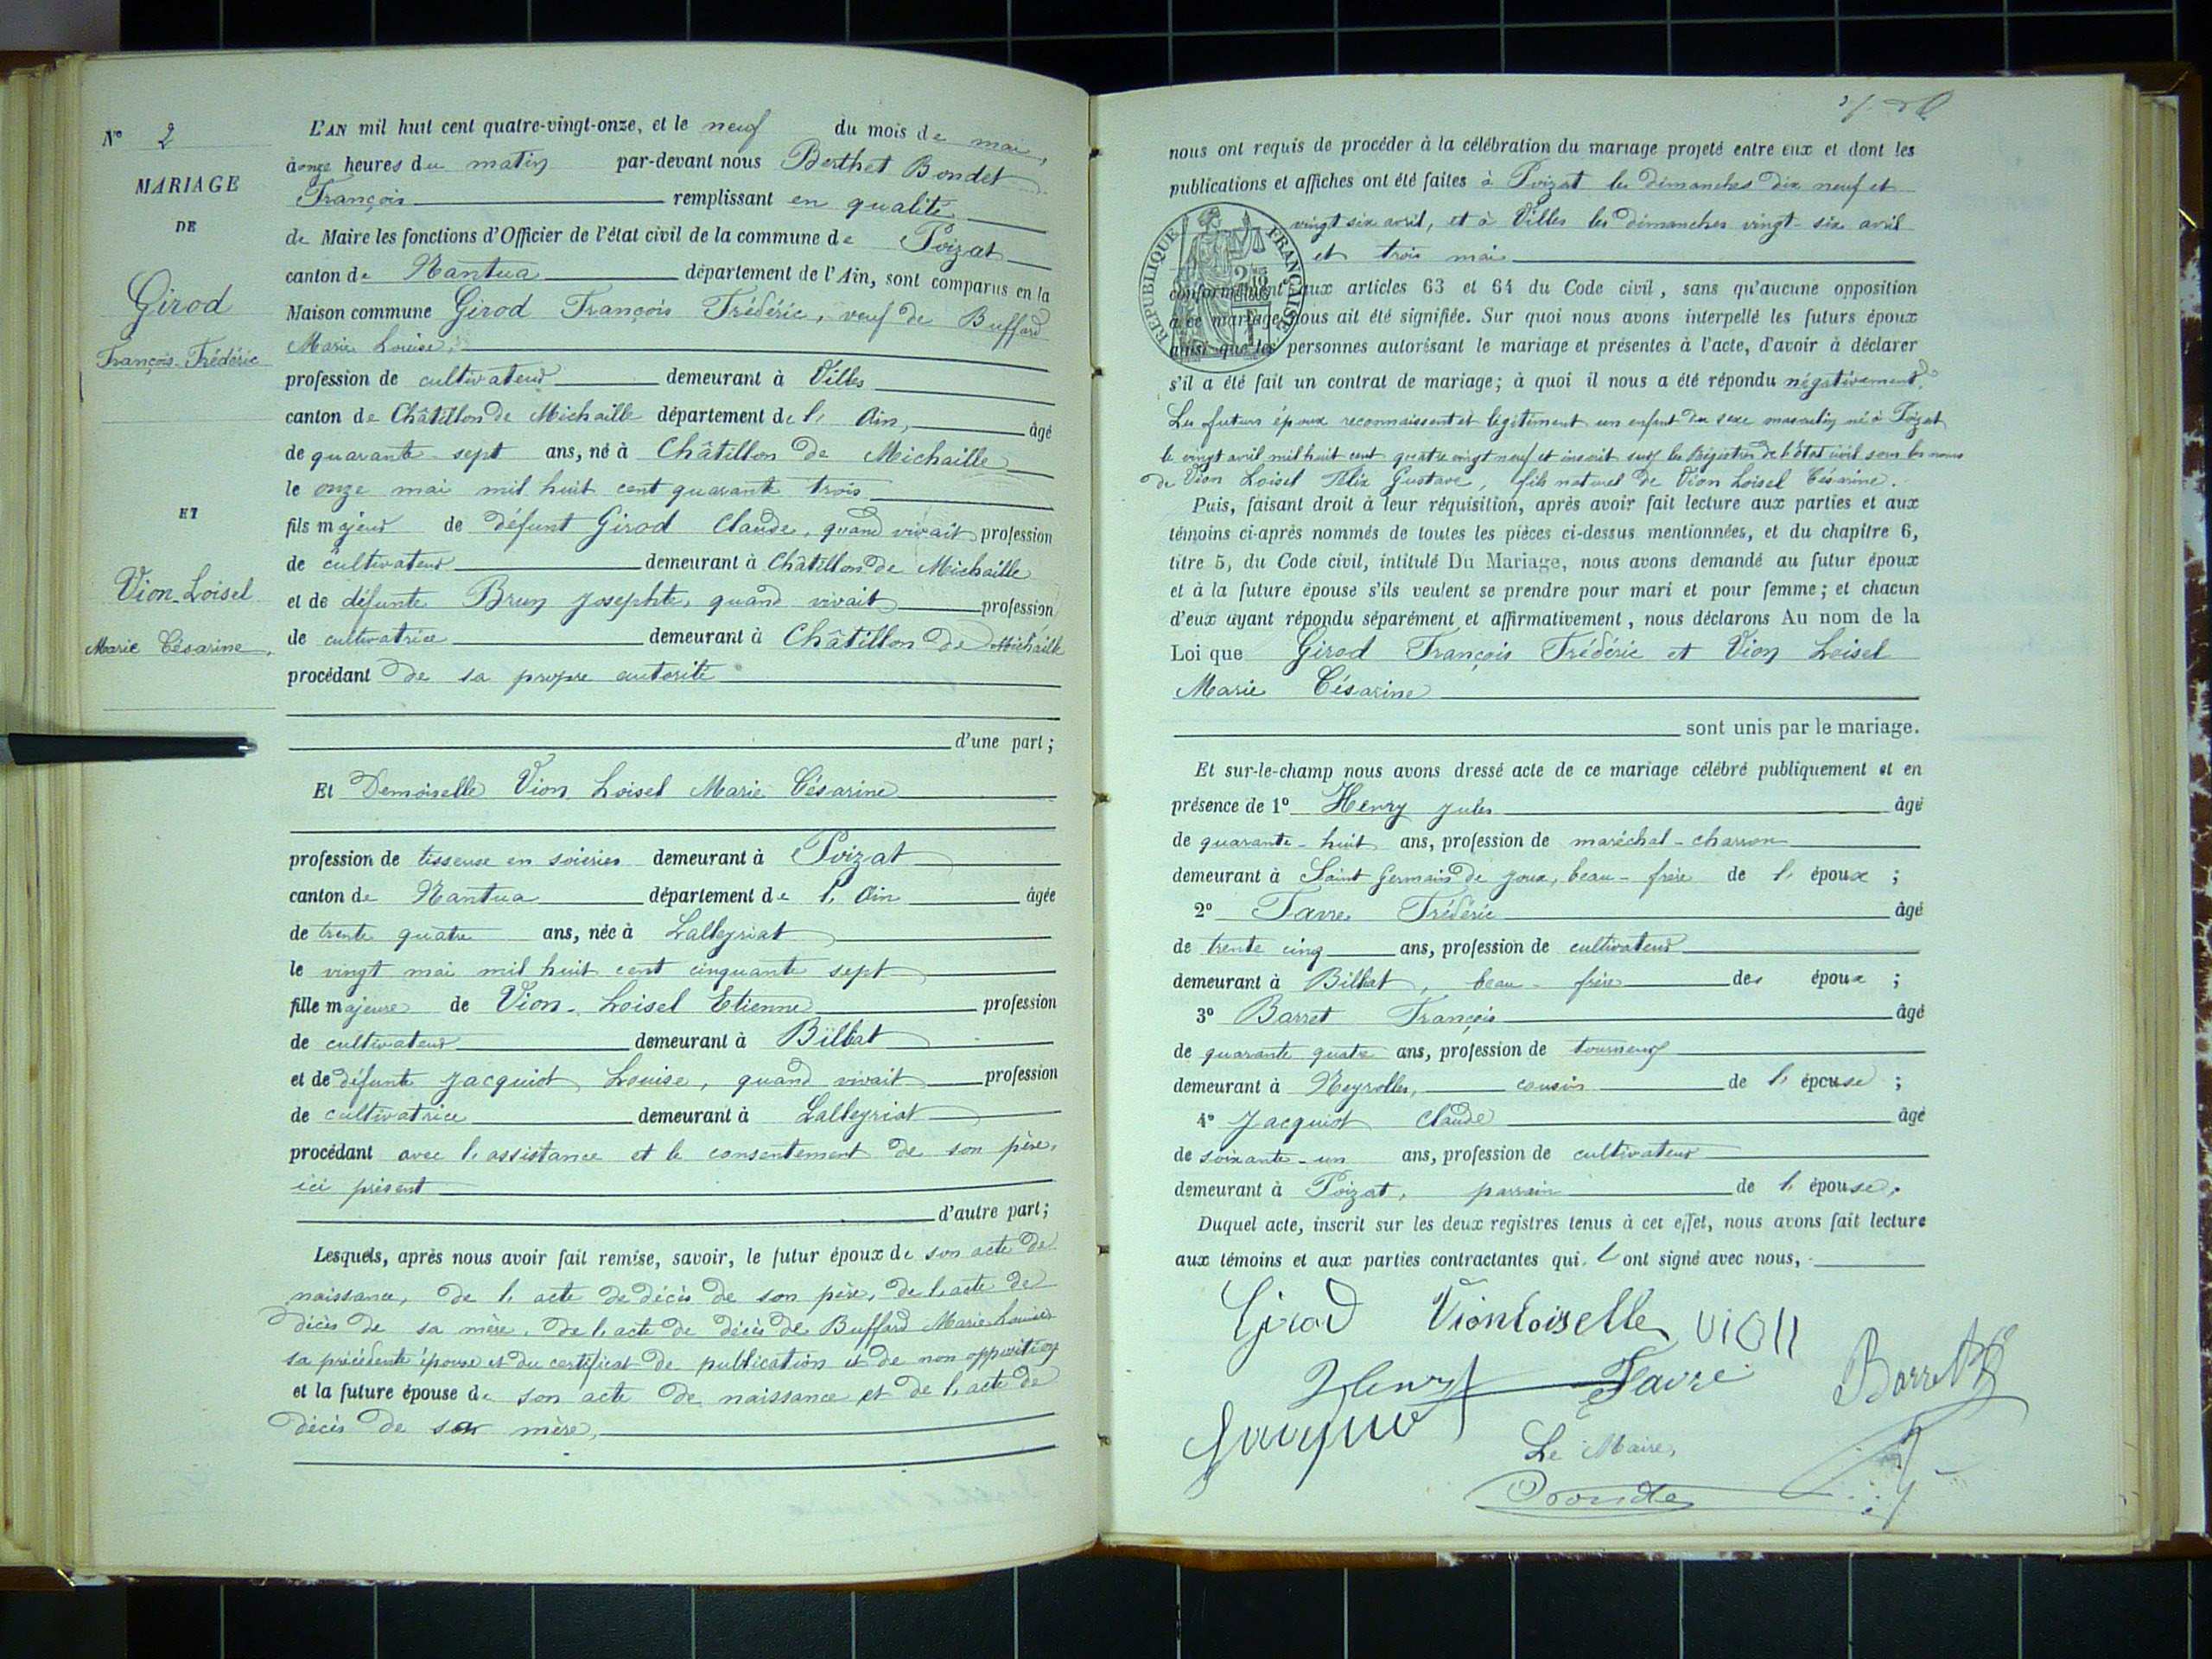 N° 2
MARIAGE
DE
Girod
François-Frédéric
ET
Vion-Loisel
Marie Césarine,
L'AN mil huit cent quatre-vingt-onze, et le neuf du mois de mai,
à onze heures du matin par-devant nous Berthet Bondet
François remplissant en qualité
de Maire les fonctions d'Officier de l'état civil de la commune de Poizat
canton de Nantua département de l'Ain, sont comparus en la
Maison commune Girod François Frédéric, veuf de Buffard
Marie Louise,
profession de cultivateur demeurant à Villes
canton de Châtillon de Michaille département de l'Ain, âgé
de quarante-sept ans, né à Châtillon de Michaille
le onze mai mil huit cent quarante trois
fils majeur de défunt Girod Claude, quand vivait profession
de cultivateur demeurant à Châtillon de Michaille
et de défunte Brun Josephte, quand vivait profession
de cultivatrice demeurant à Châtillon de Michaille
procédant de sa propre autorité
d'une part;
Et Demoiselle Vion Loisel Marie Césarine
profession de tisseuse en soieries demeurant à Poizat
canton de Nantua département de l'Ain âgée
de trente quatre ans, née à Lalleyriat
le vingt mai mil huit cent cinquante sept
fille majeure de Vion-Loisel Etienne profession
de cultivateur demeurant à Billiat
et de défunte Jacquiot Louise, quand vivait profession
de cultivatrice demeurant à Lalleyriat
procédant avec l'assistance et le consentement de son père,
ici présent
d'autre part;
Lesquels, après nous avoir fait remise, savoir, le futur époux de son acte de
naissance, de l'acte de décès de son père, de l'acte de
décès de sa mère, de l'acte de décès de Buffard Marie Louise
sa précédente épouse et du certificat de publication et de non opposition
et la future épouse de son acte de naissance et de l'acte de
décès de sa mère,
nous ont requis de procéder à la célébration du mariage projeté entre eux et dont les
publications et affiches ont été faites à Poizat les dimanches dix neuf et
vingt six avril, et à Villes les dimanches vingt-six avril
et trois mai
RÉPUBLIQUE FRANÇAISE
conformément aux articles 63 et 64 du Code civil, sans qu'aucune opposition
à ce mariage nous ait été signifiée. Sur quoi nous avons interpellé les futurs époux
ainsi que les personnes autorisant le mariage et présentes à l'acte, d'avoir à déclarer
s'il a été fait un contrat de mariage; à quoi il nous a été répondu négativement.
Les futurs époux reconnaissent et légitiment un enfant du sexe masculin né à Poizat
le vingt avril mil huit cent quatre vingt neuf et inscrit sur les Registres de l'état civil sous les noms
de Vion Loisel Félix Gustave, fils naturel de Vion Loisel Césarine.
Puis, faisant droit à leur réquisition, après avoir fait lecture aux parties et aux
témoins ci-après nommés de toutes les pièces ci-dessus mentionnées, et du chapitre 6,
titre 5, du Code civil, intitulé Du Mariage, nous avons demandé au futur époux
et à la future épouse s'ils veulent se prendre pour mari et pour femme; et chacun
d'eux ayant répondu séparément et affirmativement, nous déclarons Au nom de la
Loi que Girod François Frédéric et Vion Loisel
Marie Césarine
sont unis par le mariage.
Et sur-le-champ nous avons dressé acte de ce mariage célébré publiquement et en
présence de 1° Henry Jules âgé
de quarante-huit ans, profession de maréchal-charron
demeurant à Saint Germain de Joux, beau-frère de l'époux;
2° Favre Frédéric âgé
de trente cinq ans, profession de cultivateur
demeurant à Billiat, beau-frère des époux;
3° Barret François âgé
de quarante quatre ans, profession de tourneur
demeurant à Neyrolles, cousin de l'épouse;
4° Jacquiot Claude âgé
de soixante-un ans, profession de cultivateur
demeurant à Poizat, parrain de l'épouse.
Duquel acte, inscrit sur les deux registres tenus à cet effet, nous avons fait lecture
aux témoins et aux parties contractantes qui l'ont signé avec nous,
Girod Vionloiselle VION
Henry Favre Barret
Jacquiot
Le Maire,